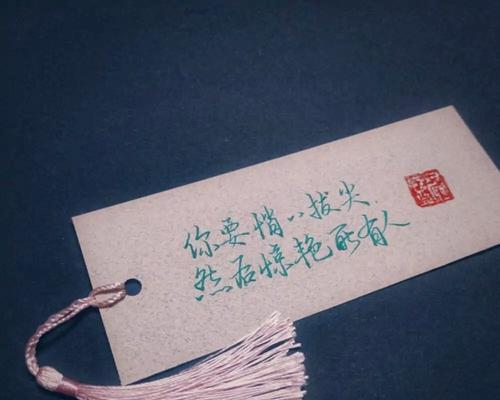 你要悄悄拔尖、
然后惊艳所有人